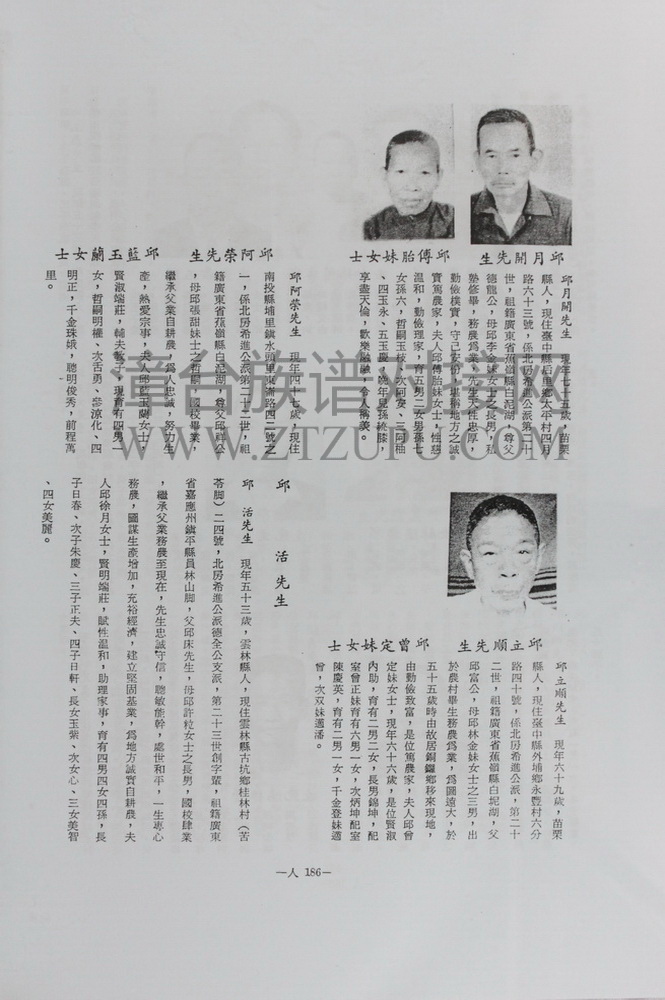 邱月開先生
邱傳胎妹女士
邱月開先生　現年七十五歲，苗栗
縣人，現住臺中縣后里鄉太平村四月
路六十三號，係北房希進公派第二十
世，祖籍廣東省蕉嶺縣白泥湖，尊父
德龍公，母邱李金妹女士之長男，私
塾修畢，務農爲業，先生天性忠厚，
勤儉樸實，守己安份，堪稱地方之誠
實篤農家，夫人邱傅胎妹女士，性慈
溫和，勤儉理家，育五男二女男孫七
女孫六，哲嗣玉枝、次阿奏、三阿秞
、四玉永、五玉慶，晚年兒孫繞膝
，享盡天倫，歡樂融融，令人稱羨。
邱阿榮先生
邱藍玉蘭女士
邱阿榮先生　現年四十七歲，現住
南投縣埔里鎮水頭里東潏路四二號之
一，係北房希進公派第二十二世，祖
籍廣東省蕉嶺縣白泥湖，尊父邱祥公
，母邱張甜妹士之哲嗣，國校畢業
繼承父業自耕農，爲人忠誠，努力生
產，熱愛宗事，夫人邱藍玉蘭女士，
賢淑端莊，輔夫教子，現育有四男一
女，哲嗣明權、次舌勇、參諒化、四
明正，千金珠娥，聰明俊秀，前程萬
里。
邱立順先生
邱曾定妹女士
邱立順先生　現年六十九歲，苗栗
縣人，現住臺中縣外埔鄉永豐村六分
路四十號，係北房希進公派，第二十
二世，祖籍廣東省蕉嶺縣白坭湖，父
邱富公，母邱林金妹女士之三男，出
於農村畢生務農爲業，爲圖遠大，於
五十五歲時由故居銅鑼鄉移來現地，
由勤儉致富，是位篤農家，夫人邱曾
定妹女士，現年六十六歲，是位賢淑
內助，育有二男二女，長男錦坤，配
室曾正妹育有六男一女，次炳坤配室
陳慶英，育有二男一女，千金登妹適
曾，次双妹適潘。
邱　活先生
邱　活先生　現年五十三歲，雲林縣人，現住雲林縣古坑鄉桂林村（苦
苓脚）二四號，北房希進公派德全公支派，第二十三世創字輩，祖籍廣東
省嘉應州鎮平縣員林山脚，父邱床先生，母邱許粒女士之長男，國校肄業
，繼承父業務農至現在，先生忠誠守信，聰敏能幹，處世和平，一生專心
務農，圖謀生產增加，充裕經濟，建立堅固基業，爲地方誠實自耕農，夫
人邱徐月女士，賢明端莊，賦性溫和，助理家事，育有四男四女四孫，長
子日春、次子朱慶、三子正夫、四子日軒、長女玉紫、次女心、三女美智
、四女美麗。
—人 186—
章台族谱书库
WWW.ZTZUPU.COM